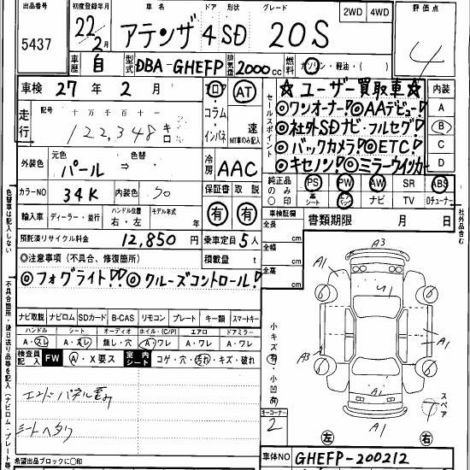 出品番号 初度登録年月 車名 ドア 形状 グレード 2WD 4WD 評価点
5437 22年2月 アテンザ 4 SD 20S 4
車歴 自 型式 DBA-GHEFP 排気量 2000cc 燃料 ガソリン・軽油・( )
車検 27年2月 AT
☆ユーザー買取車☆ 内装
◎ワンオーナー! ◎AAデビュー! A
走行 十万千百十一 122,348キロ コラム・インパネ 速 セールスポイント ◎社外SDナビ・フルセグ! B
◎バックカメラ! ◎ETC! C
外装色 元色 パール→ 色替 冷房 AAC ◎キセノン! ◎ミラーウインカー D
カラーNO 34K 内装色 保証書 取説 純正品のみ○印 PS PW AW SR ABS
ナビ TV
輸入車 ディーラー・並行 ハンドル 左・右 モデル年式 有 有 車検証記載
書類期限 月 日
預託済リサイクル料金 12,850円 乗車定員 5人 全長 cm
◎注意事項(不具合、修復箇所) 積載量 t 全幅 cm
◎フォグライト!! ◎クルーズコントロール! 全高 cm
ナビ取説 ナビロム SDカード B-CAS リモコン プレート カギ 書類 スマートキー
ハンドル シート オーディオ ホイル・(C/P) エアロ ドアミラー
A・スレ A・スレ 無し・穴 A・ワレ A・ワレ A・ワレ
検査員記入 FW A・X要ス 室内シート コゲ・穴・汚れ・キズ・破れ
エンドパネル歪み
シートヘタリ
A3
A1
A1
A3
U1
A1
U1
A1
A1
スペア
コーナー 2
左 右
希望出品ブロックに○印
車体NO GHEFP-200212